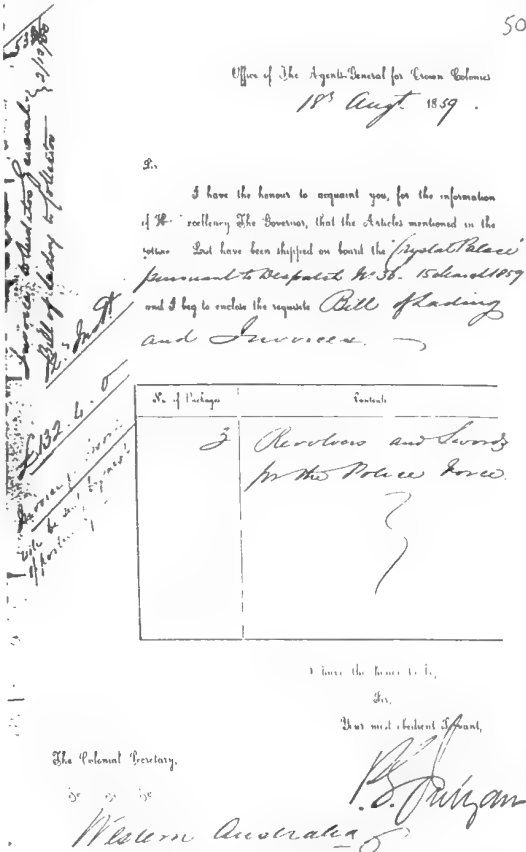 50
Office of The Agents General for Crown Colonies
18th Augt. 1859.
Sir
I have the honour to acquaint you, for the information
of H xcellency The Governor, that the Articles mentioned in the
List have been shipped on board the "Crystal Palace"
pursuant to Despatch No 36. 15 March 1859
and I beg to enclose the requisite Bill of Lading
and Invoices.
No. of Packages Contents
3 Revolvers and Swords
for the Police Force.
I have the honor to be,
Sir,
Your most obedient Servant,
The Colonial Secretary,
&c &c &c
Western Australia
Invoice to Auditor General
Bill of lading to Collector
£132.4.0